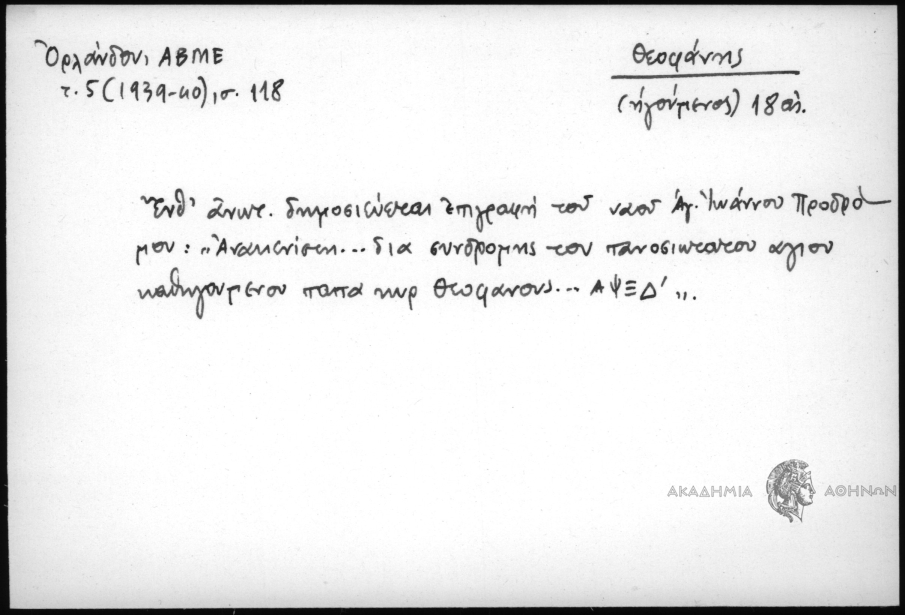 Ὀρλάνδου, ΑΒΜΕ
τ. 5 (1939-40), σ. 118
Θεοφάνης
(ἡγούμενος) 18 αἰ.
Ἔνθ' ἄνωτ. δημοσιεύεται ἐπιγραφή τοῦ ναοῦ Ἁγ. Ἰωάννου Προδρό-
μου: „Ἀνακενίσθη... δια συνδρομης του πανοσιωτατου αγιου
καθηγουμενου παπα κυρ Θεοφανους... ΑΨΞΔ' „.
ΑΚΑΔΗΜΙΑ ΑΘΗΝΩΝ